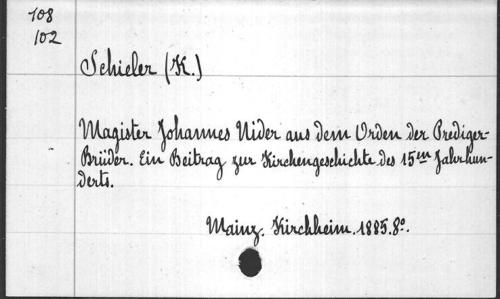 108
102
Schieler (K.)
Magister Johannes Nider aus dem Orden der Prediger-
Brüder. Ein Beitrag zur Kirchengeschichte des 15ten Jahrhun-
derts.
Mainz. Kirchheim. 1885. 8º.